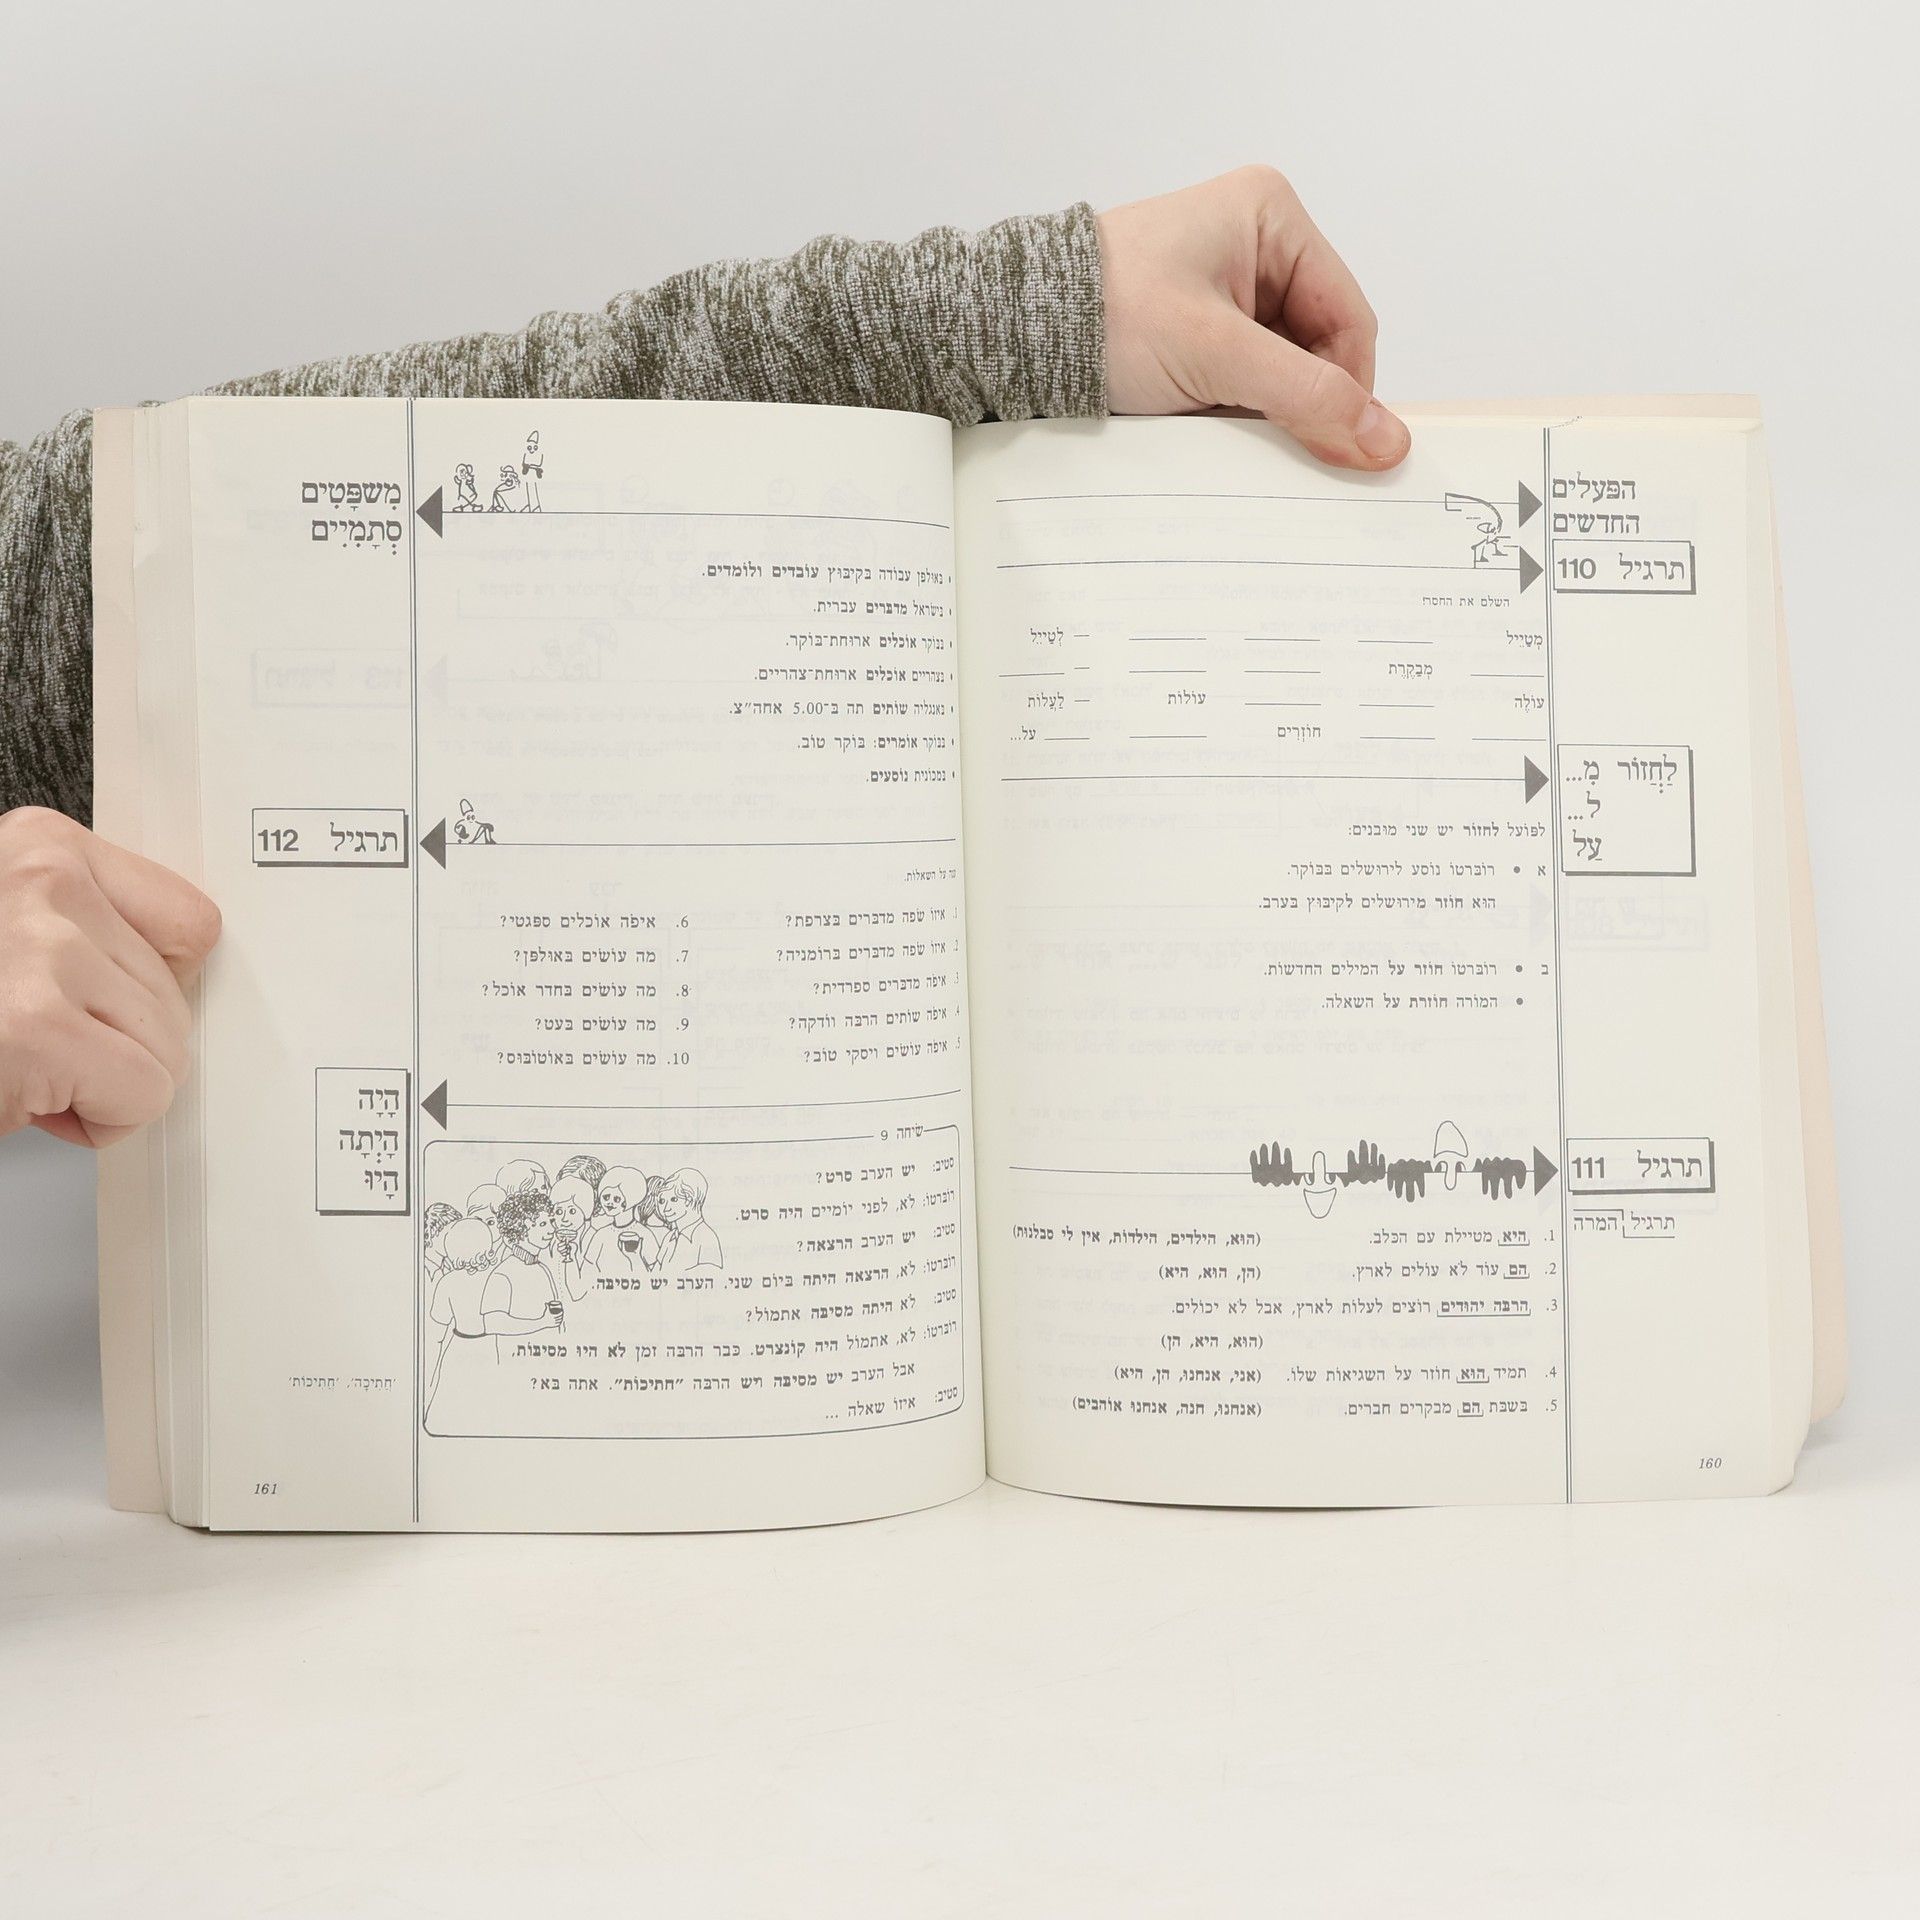 הפעלים
החדשים
תרגיל 110
השלם את החסר!
מְטַיֵּיל לְטַיֵּיל
מְבַקֶּרֶת
עוֹלֶה עוֹלוֹת לַעֲלוֹת
חוֹזְרִים על...
לַחֲזוֹר מְ...
ל...
עַל
לפועל לחזור יש שני מובנים:
א • רוברטו נוסע לירושלים בבוקר.
הוא חוזר מירושלים לקיבוץ בערב.
ב • רוברטו חוזר על המילים החדשות.
• המורה חוזרת על השאלה.
תרגיל 111
תרגיל המרה
1. היא מטיילת עם הכלב. (הוא, הילדים, הילדות, אין לי סבלנות)
2. הם עוד לא עולים לארץ. (הן, הוא, היא)
3. הרבה יהודים רוצים לעלות לארץ, אבל לא יכולים.
(הוא, היא, הן)
4. תמיד הוא חוזר על השגיאות שלו. (אני, אנחנו, הן, היא)
5. בשבת הם מבקרים חברים. (אנחנו, חנה, אנחנו אוהבים)
160
מִשְׁפָּטִים
סְתָמִיִּים
• באולפן עבודה בקיבוץ עובדים ולומדים.
• בישראל מדברים עברית.
• בבוקר אוכלים ארוחת־בוקר.
• בצהריים אוכלים ארוחת־צהריים.
• באנגליה שותים תה ב־5.00 אחה"צ.
• בבוקר אומרים: בוקר טוב.
• במכונית נוסעים.
תרגיל 112
ענה על השאלות.
1. איזו שפה מדברים בצרפת?
2. איזו שפה מדברים ברומניה?
3. איפה מדברים ספרדית?
4. איפה שותים הרבה וודקה?
5. איפה עושים ויסקי טוב?
6. איפה אוכלים ספגטי?
7. מה עושים באולפן?
8. מה עושים בחדר אוכל?
9. מה עושים בעט?
10. מה עושים באוטובוס?
הָיָה
הָיְתָה
הָיוּ
שיחה 9
סטיב: יש הערב סרט?
רוברטו: לא, לפני יומיים היה סרט.
סטיב: יש הערב הרצאה?
רוברטו: לא, הרצאה היתה ביום שני. הערב יש מסיבה.
סטיב: לא היתה מסיבה אתמול?
רוברטו: לא, אתמול היה קונצרט. כבר הרבה זמן לא היו מסיבות,
אבל הערב יש מסיבה ויש הרבה "חתיכות". אתה בא?
סטיב: איזו שאלה ...
'חֲתִיכָה', 'חֲתִיכוֹת'
161